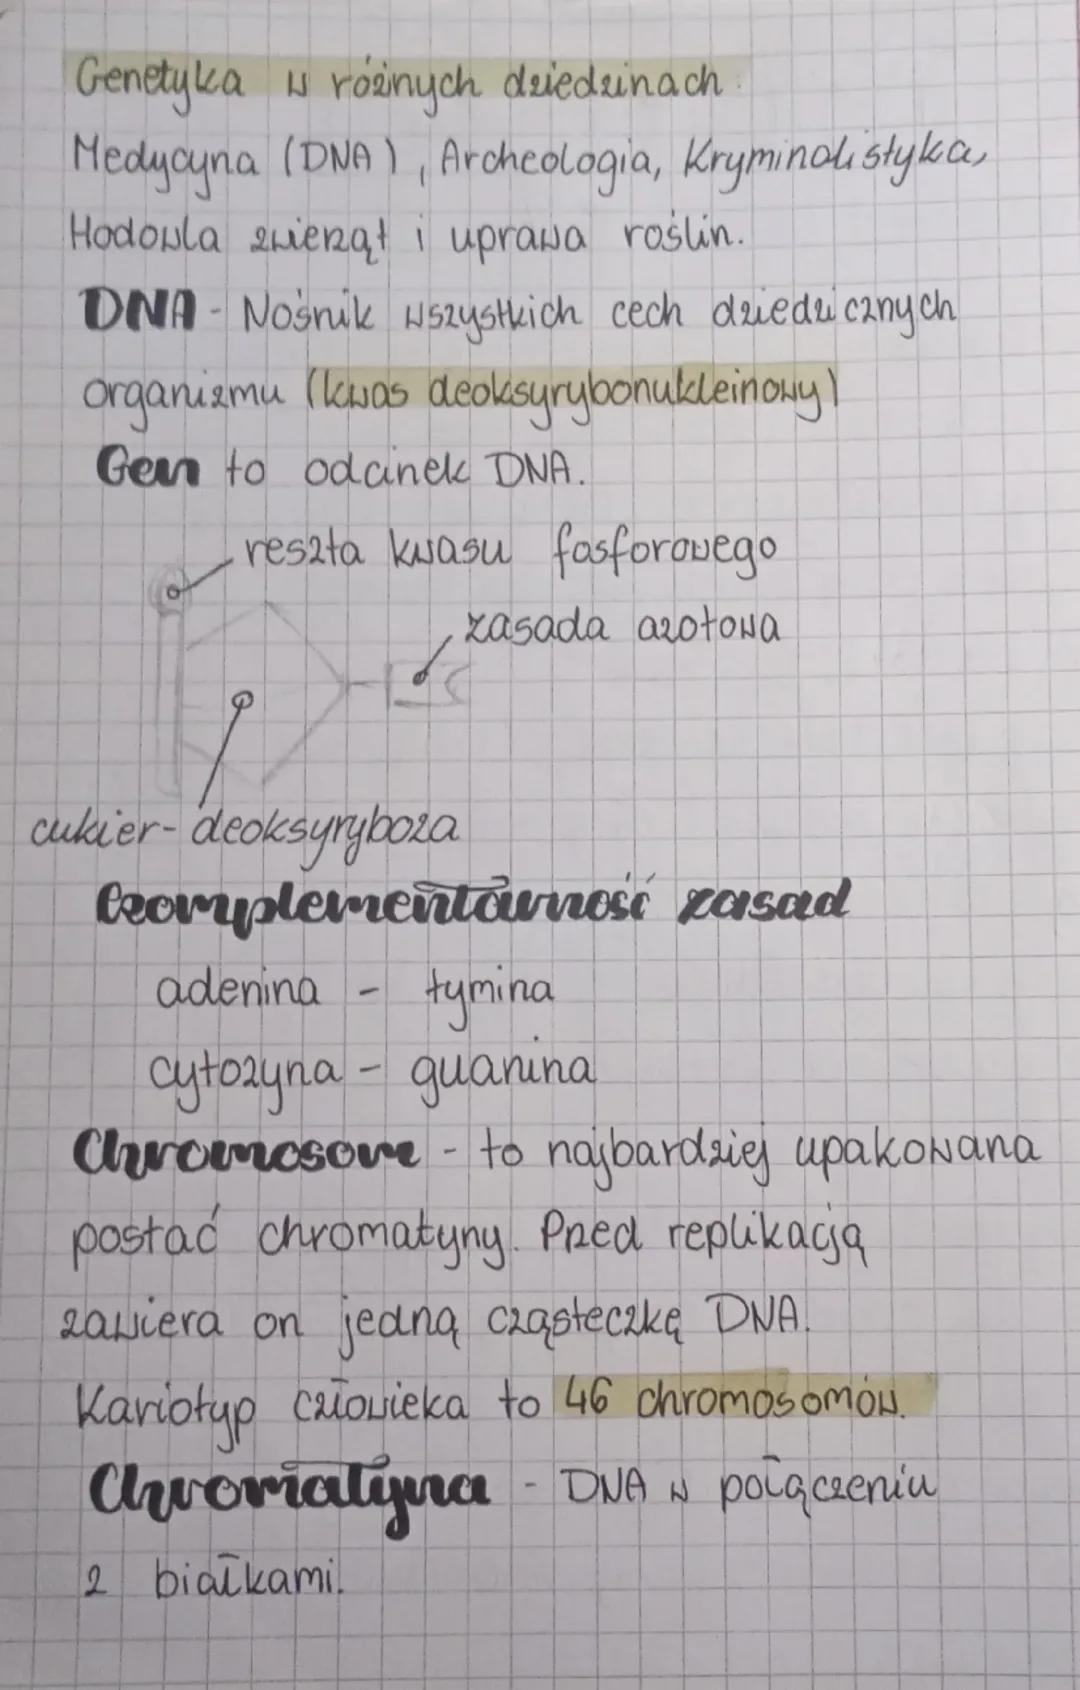 Genetyka w różnych dziedzinach.
Medycyna (DNA), Archeologia, Kryminalistyka,
Hodowla zwierząt i uprawa roślin.
DNA - Nośnik wszystkich cech dziedzicznych
organizmu (kwas deoksyrybonukleinowy)
Gen to odcinek DNA.
reszta kwasu fosforowego
zasada azotowa
cukier - deoksyryboza
Komplementarność zasad
adenina - tymina
cytozyna - guanina
Chromosom - to najbardziej upakowana
postać chromatyny. Przed replikacją
zawiera on jedną cząsteczkę DNA.
Kariotyp człowieka to 46 chromosomów.
Chromatyna - DNA w połączeniu
z białkami.